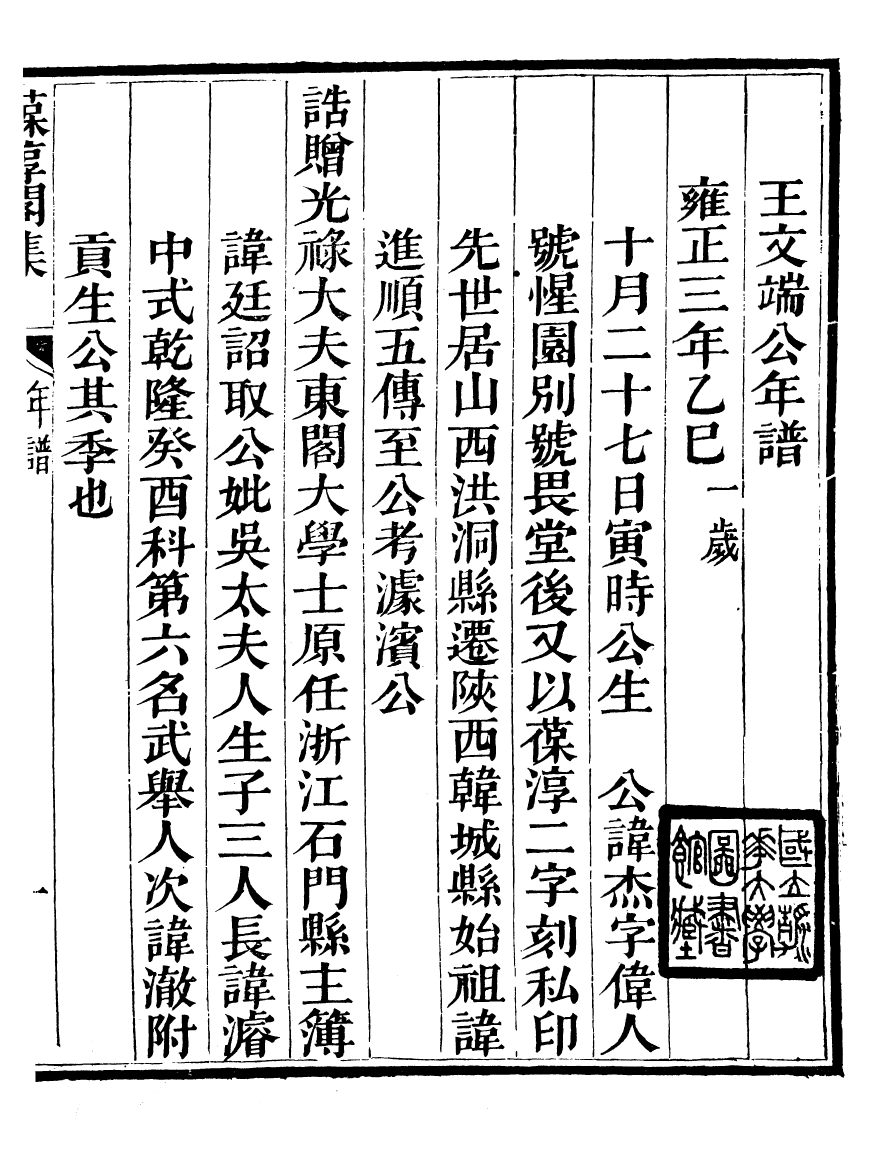 王文端公年譜
雍正三年乙巳一歲
十月二十七日寅時公生　公諱杰字偉人
號惺園別號畏堂後又以葆淳二字刻私印
先世居山西洪洞縣遷陝西韓城縣始祖諱
進順五傳至公考濾濱公
誥贈光祿大夫東閣大學士原任浙江石門縣主簿
諱廷詔取公妣吳太夫人生子三人長諱濬
中式乾隆癸酉科第六名武舉人次諱澈附
貢生公其季也
葆淳閣集
年譜
一
國立清
華大學
圖書
館藏